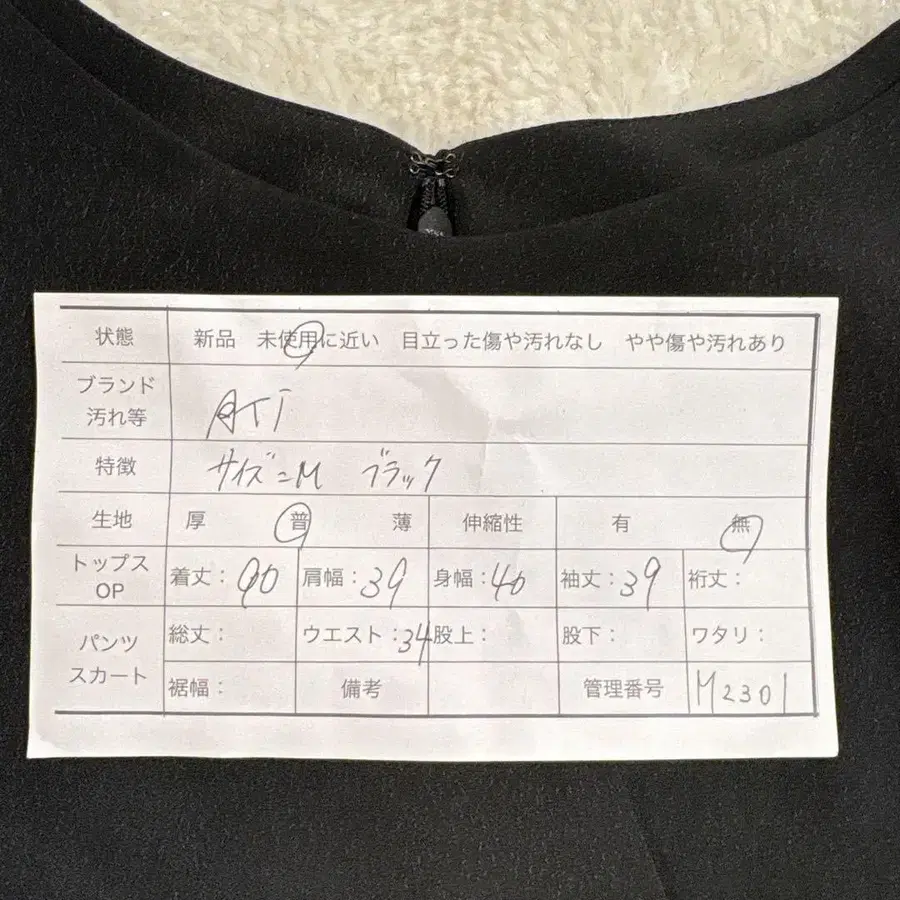 状態 新品 未使用に近い 目立った傷や汚れなし やや傷や汚れあり
ブランド
汚れ等
特徴 サイズ=M ブラック
生地 厚 普 薄 伸縮性 有 無
トップス
OP
着丈: 90 肩幅: 39 身幅: 40 袖丈: 39 裄丈:
パンツ
スカート
総丈: ウエスト: 34 股上: 股下: ワタリ:
裾幅: 備考 管理番号 M2301